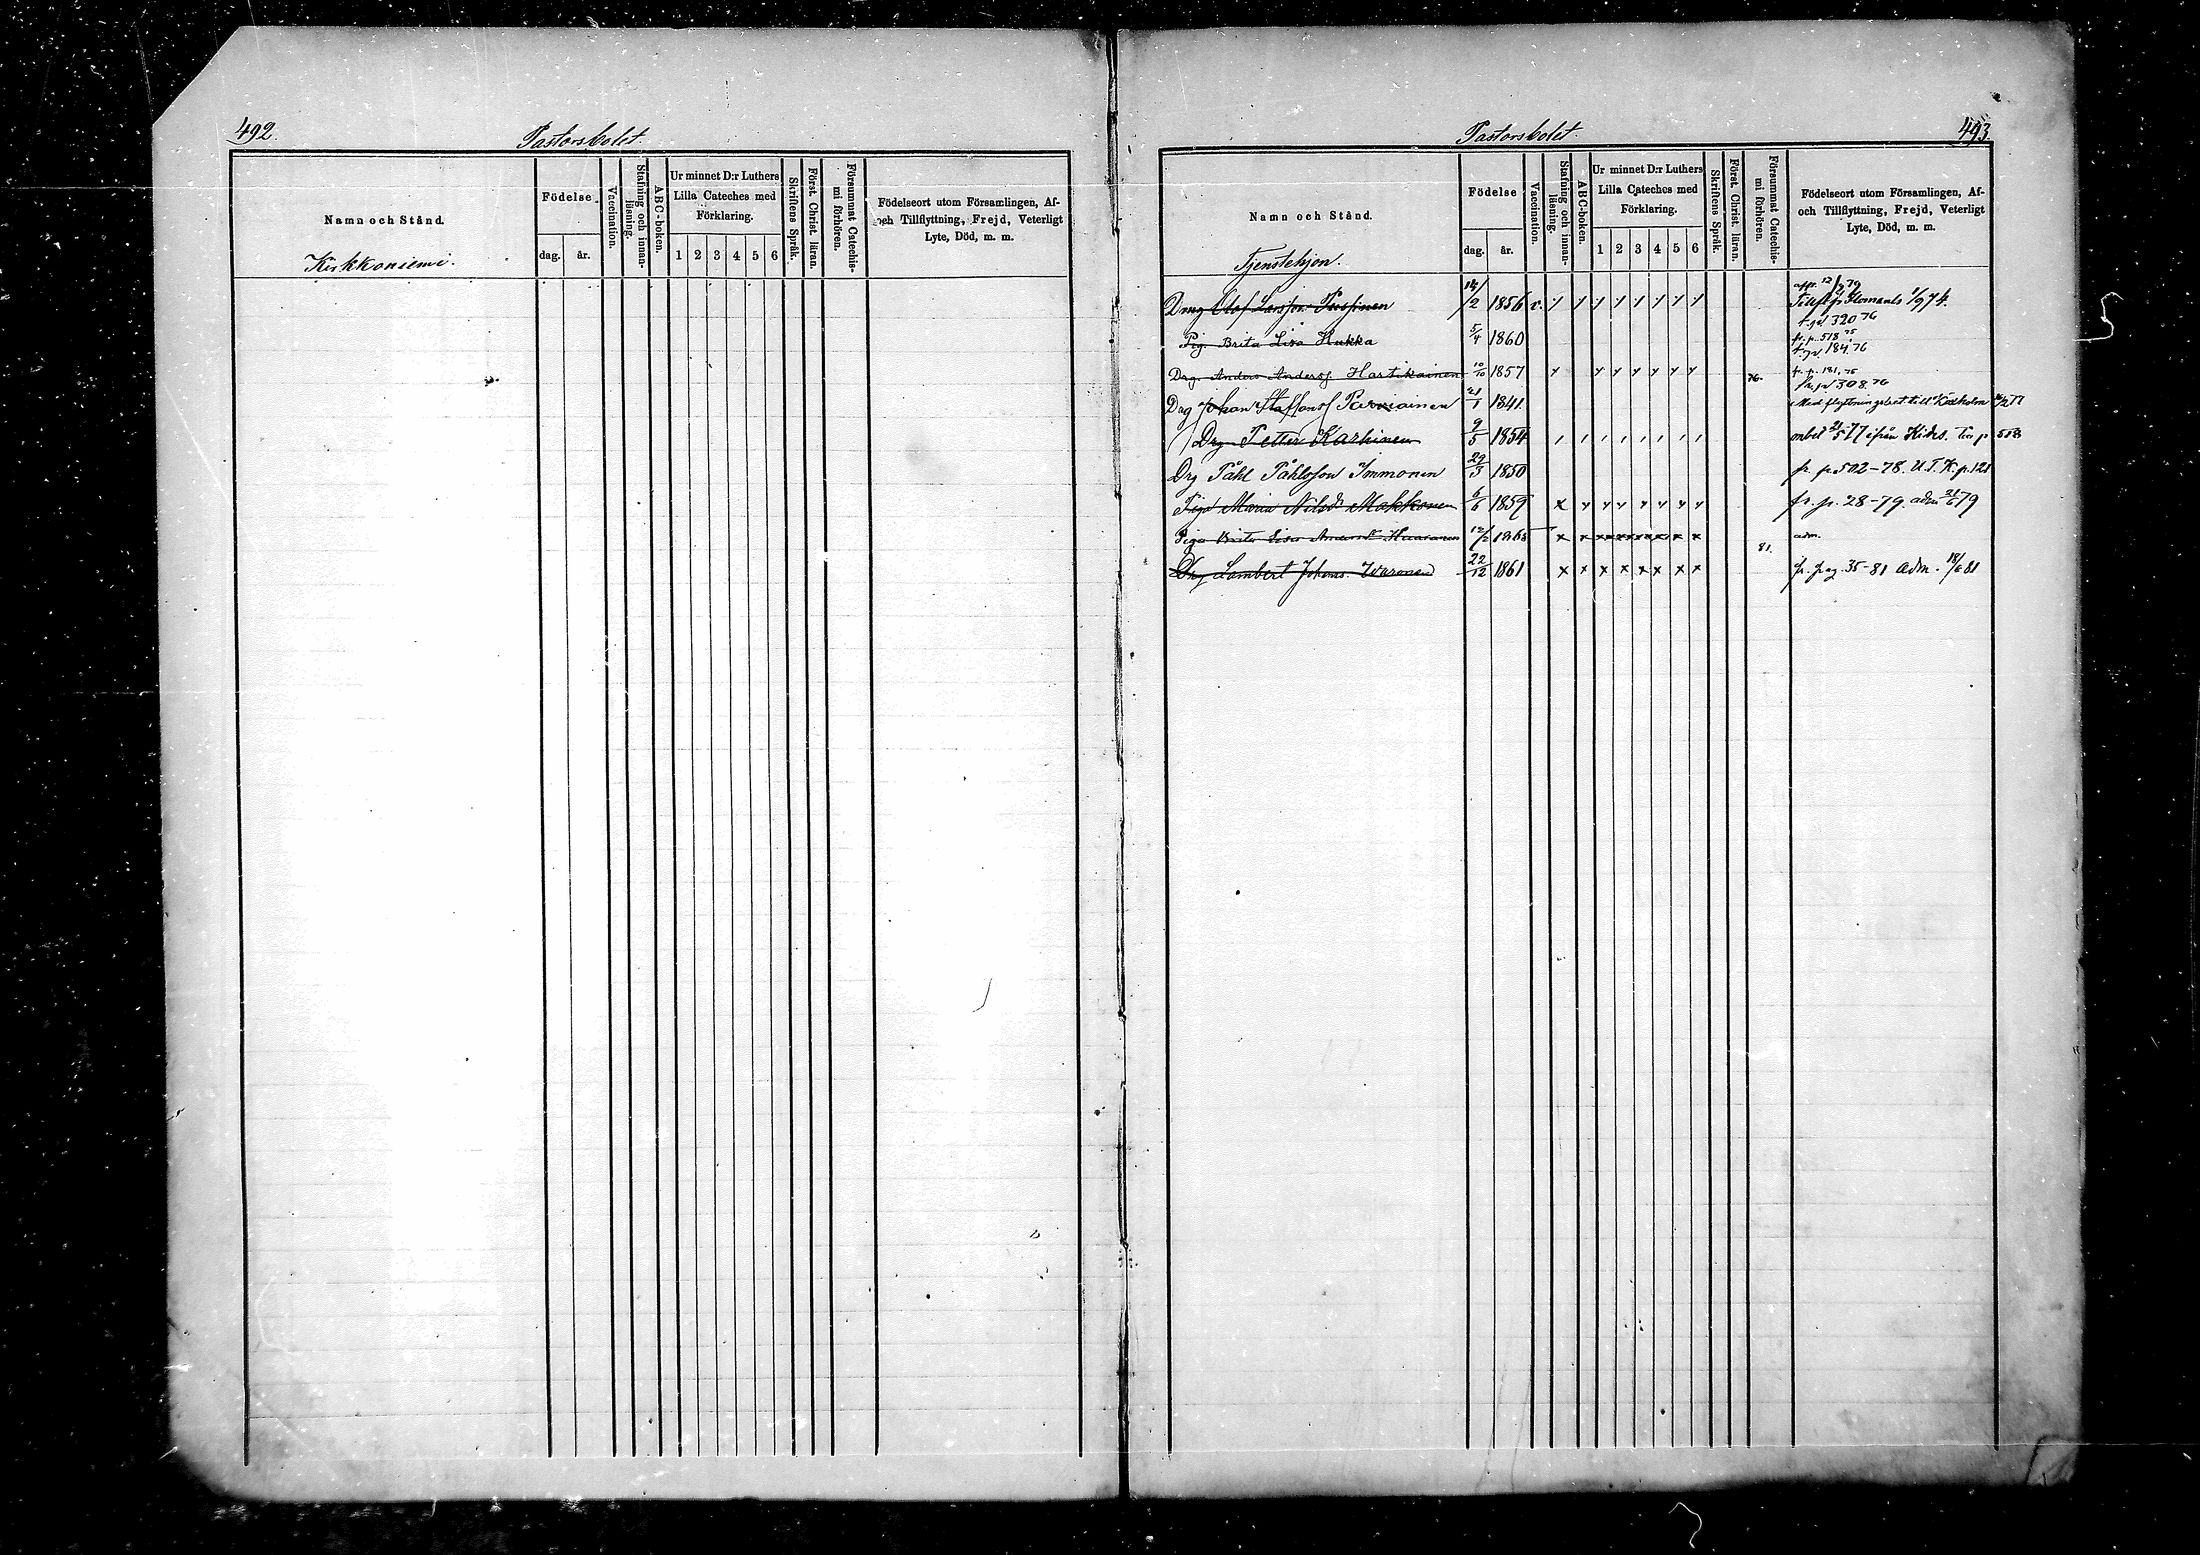 492.
Pastorsbolet.
Namn och Stånd.
Kirkkoniemi.
Födelse
dag. år.
Vaccination.
Stafning och innanläsning.
ABC-boken.
Ur minnet D:r Luthers
Lilla Cateches med
Förklaring.
1 2 3 4 5 6
Skriftens Språk.
Först. Christ. läran.
Försummat Catechismi förhören.
Födelseort utom Församlingen, Af-
och Tillflyttning, Frejd, Veterligt
Lyte, Död, m. m.
Pastorsbolet
493
Namn och Stånd.
Tjenstehjon.
Födelse
dag. år.
Vaccination.
Stafning och innanläsning.
ABC-boken.
Ur minnet D:r Luthers
Lilla Cateches med
Förklaring.
1 2 3 4 5 6
Skriftens Språk.
Först. Christ. läran.
Försummat Catechismi förhören.
Födelseort utom Församlingen, Af-
och Tillflyttning, Frejd, Veterligt
Lyte, Död, m. m.
Olof Larsson 14/2 1856 v. 1/9 74.
320 76
Pig. Brita Lisa Kukka 5/4 1860 fr. p. 518 75
184. 76
Drg. Anders Anderss. Hartikainen 10/10 1857 76. fr. p. 181. 75
308. 76
Drg Johan Staffanss 21/1 1841. Med flyttningsbet till Kexholm
Drg Petter Karhinen 9/5 1854 ifrån Kides.
Drg Påhl Påhlsson Immonen 29/3 1850 fr. p. 502-78. U.T.K. p. 121
Piga Maria Nilsd. Makkonen 6/6 1859 fr. p. 28-79. adm 21/6 79
Piga Brita Lisa adm.
81.
Drg Lambert Johans. Waronen 22/12 1861 fr. pag. 35-81 Adm. 18/6 81